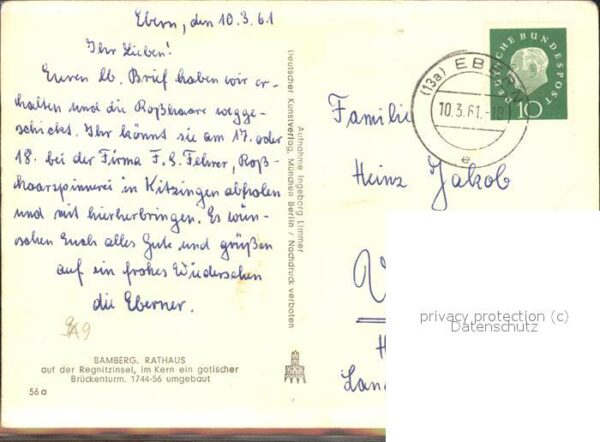 Ebern, den 10.3.61
Ihr Lieben!
Euren lb. Brief haben wir er-
halten und die Roßhaare wegge-
schickt. Ihr könnt sie am 17. oder
18. bei der Firma F. G. Fehrer, Roß-
haarspinnerei in Kitzingen abholen
und mit hierherbringen. Es wün-
schen Euch alles Gute und grüßen
auf ein frohes Wiedersehen
die Eberner.
BAMBERG. RATHAUS
auf der Regnitzinsel, im Kern ein gotischer
Brückenturm. 1744-56 umgebaut
56 a
Aufnahme Ingeborg Limmer
Deutscher Kunstverlag, München Berlin / Nachdruck verboten
DEUTSCHE BUNDESPOST
10
(13a) EBERN
10.3.61.-18
e
Familie
Heinz Jakob
privacy protection (c)
Datenschutz